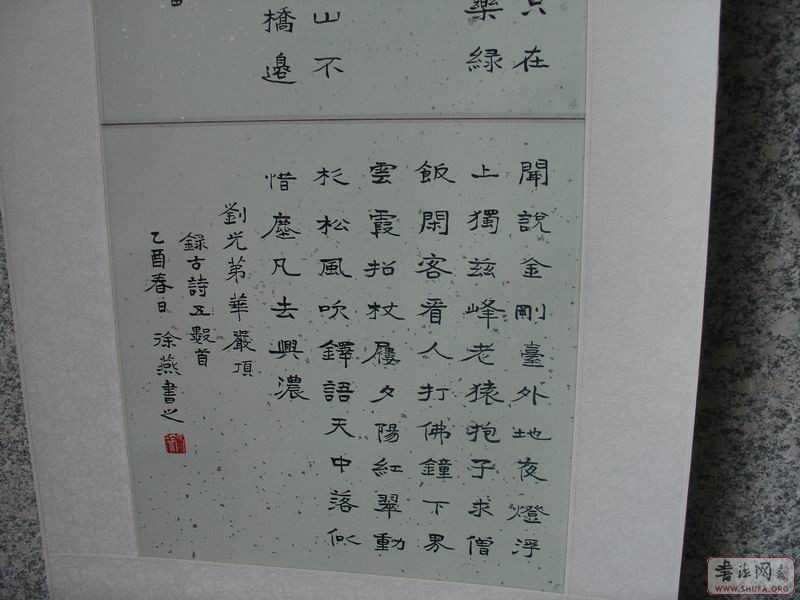 在
緑
山不
橋邊
聞說金剛臺外地夜燈浮
上獨兹峰老猿抱子求僧
飯閑客看人打佛鐘下界
雲霞招杖屨夕陽紅翠動
杉松風吹鐸語天中落似
惜塵凡去興濃
劉光第華嚴頂
録古詩五數首
乙酉春日徐燕書之
书法网
WWW.SHUFA.ORG